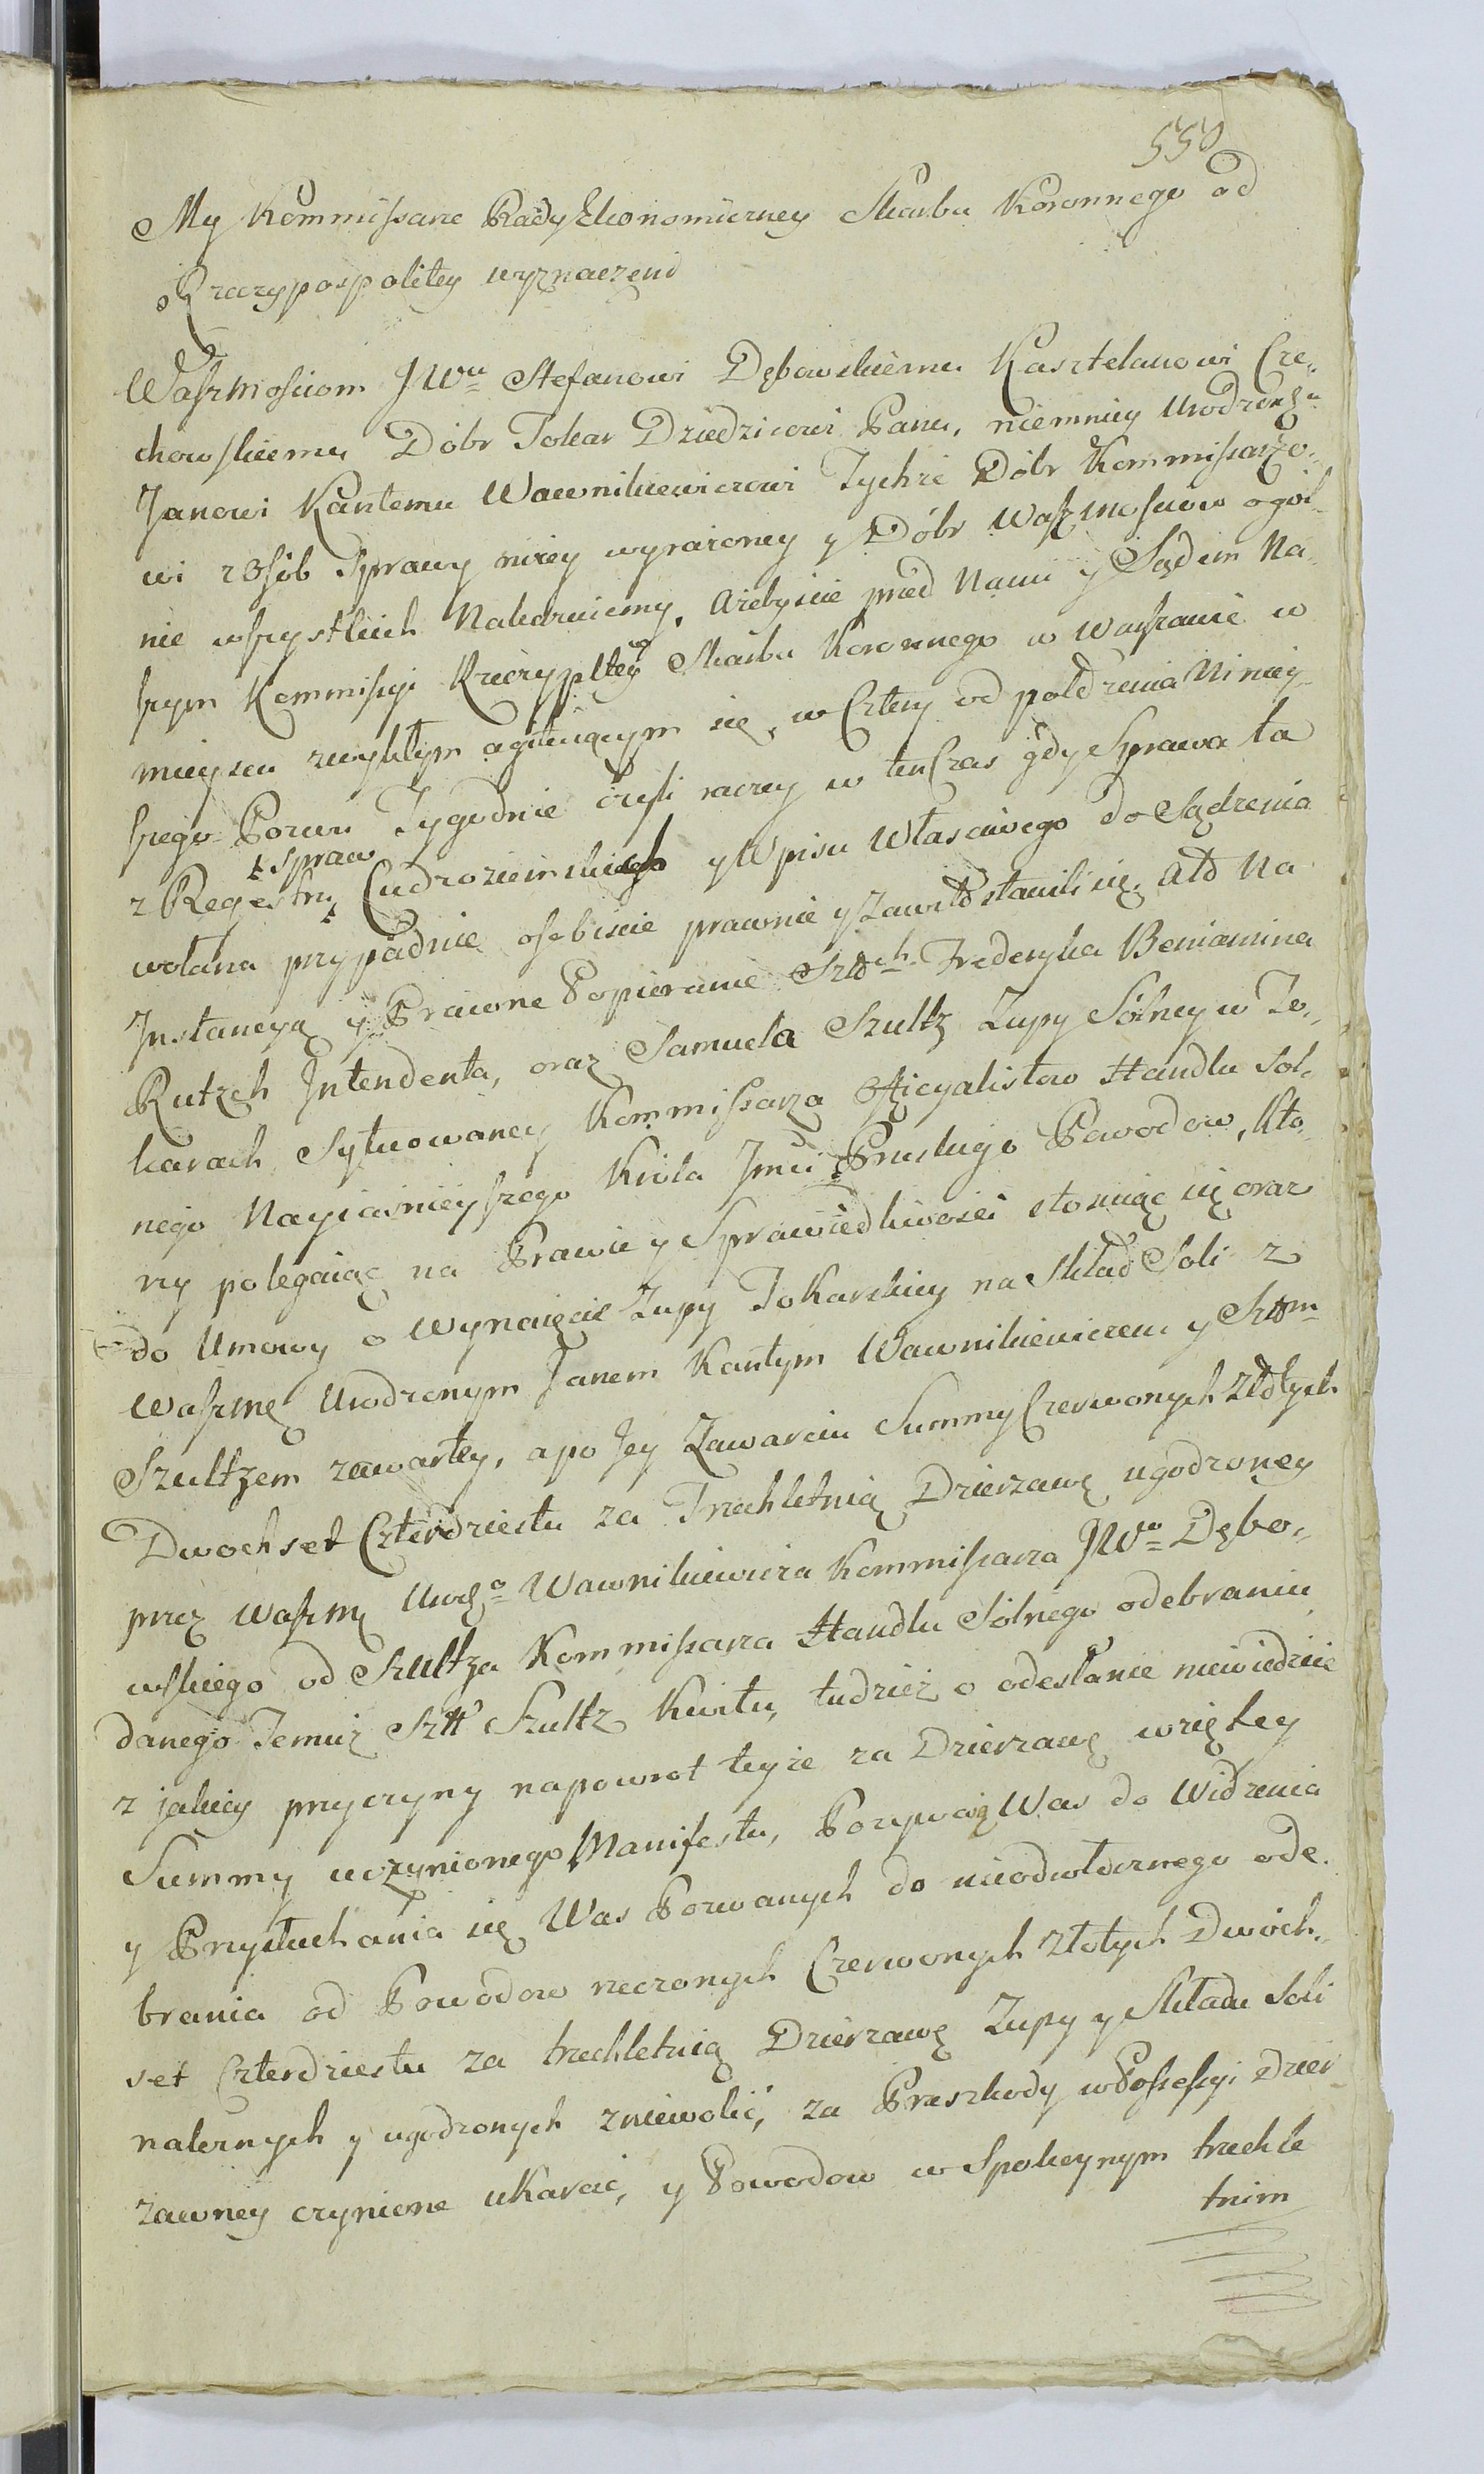 550
My Kommissarze Rady Ekonomiczney Skarbu Koronnego od
Rzeczypospolitey wyznaczeni
Waszmościom JWu Stefanowi Dębowskiemu Kasztelanowi Cze,,
chowskiemu Dóbr Tokar Dziedzicowi Panu, niemniey Urodzonemu
Janowi Kantemu Wawnikiewiczowi Tychże Dóbr Kommissarzo,,
wi z Osób Sprawy niżey wyrażoney y Dóbr Waszmościow ogól,,
nie wszystkich Nakazuiemy, ażebyście przed Nami y Sądem Na,,
szym Kommissyi Rzeczypltey Skarbu Koronnego w Warszawie w
mieyscu zwykłym agituiącym się, w Cztery od położenia Ninieу,,
szego Pozwu Tygodnie czyli raczey w ten Czas gdy Sprawa ta
spraw
z Regestru Cudzoziemskich y Wpisu Własciwego do Sądzenia
wołana przypadnie osobiscie prawnie y Zawito stawili się. Ato Na
Jnstancyą y Prawne Popieranie Szltch Frederyka Beniamina
Rutzch Jntendenta, oraz Samuela Szultz Zupy Sólney w To,,
karach Sytuowaney Kommissarza Officyalistow Handlu Sol,,
nego Nayiaśnieyszego Króla Jmci Pruskiego Powodow, Kto,,
rzy polegaiąc na Prawie y Sprawiedliwości stosuiąc się oraz
do Umowy o Wynaięcie Zupy Tokarskiey na Skład Soli z
Waszmę Urodzonym Janem Kantym Wawnikiewiczem y Szltm
Szultzem zawartey, a po Jey Zawarciu Summy Czerwonych Złotych
Dwochset Czterdziestu za Trzechletnią Dzierzawę ugodzoney
przez Waszmę Urodzo Wawnikiewicza Kommissarza JWo Dębo,,
wskiego od Szultza Kommissarza Handlu Sólnego odebraniu
danego Temuż Szlt Szultz Kwitu, tudzież o odesłanie niewiedzieć
z jakiey przyczyny napowrot teyże za Dzierzawę wziętey
Summy uczynionego Manifestu, Pozywaią Was do Widzenia
y Przysłuchania się Was Pozwanych do nieodwłocznego ode,,
brania od Powodow rzeczonych Czerwonych Złotych Dwóch,,
set Czterdziestu za trzechletnią Dzierzawę Zupy y Składu Soli
należnych y ugodzonych zniewolić, za Przeszkody w Possessyi Dzier
zawney czynione ukarać, y Powodow w Spokoynym trzechle
tnim